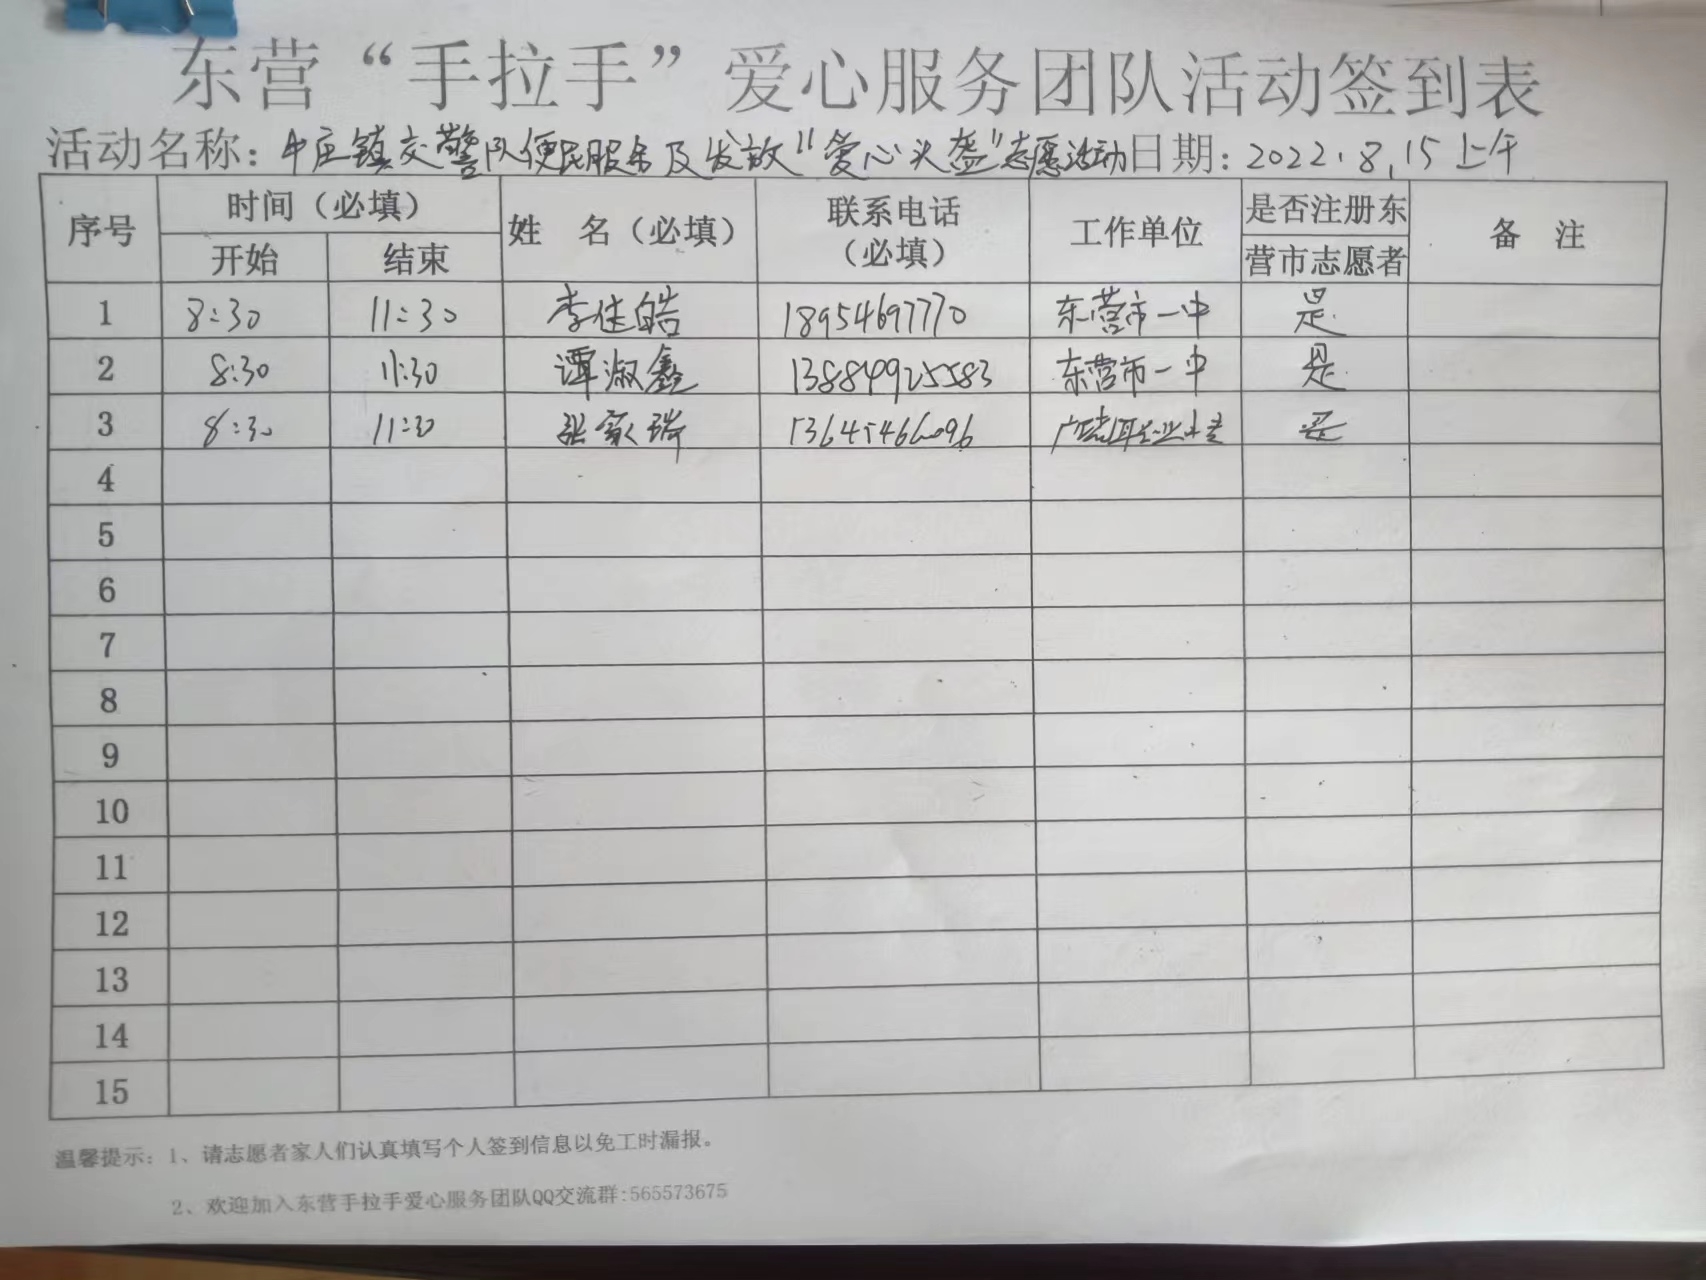 东营“手拉手”爱心服务团队活动签到表
活动名称：牛庄镇交警队便民服务及发放“爱心头盔”志愿活动 日期：2022.8.15上午
序号 时间（必填） 姓 名（必填） 联系电话（必填） 工作单位 是否注册东营市志愿者 备 注
开始 结束
1 8:30 11:30 李佳皓 18954697770 东营市一中 是
2 8:30 11:30 谭淑鑫 138849925583 东营市一中 是
3 8:30 11:30 张家瑞 13645466096 是
4
5
6
7
8
9
10
11
12
13
14
15
温馨提示：1、请志愿者家人们认真填写个人签到信息以免工时漏报。
2、欢迎加入东营手拉手爱心服务团队QQ交流群:565573675